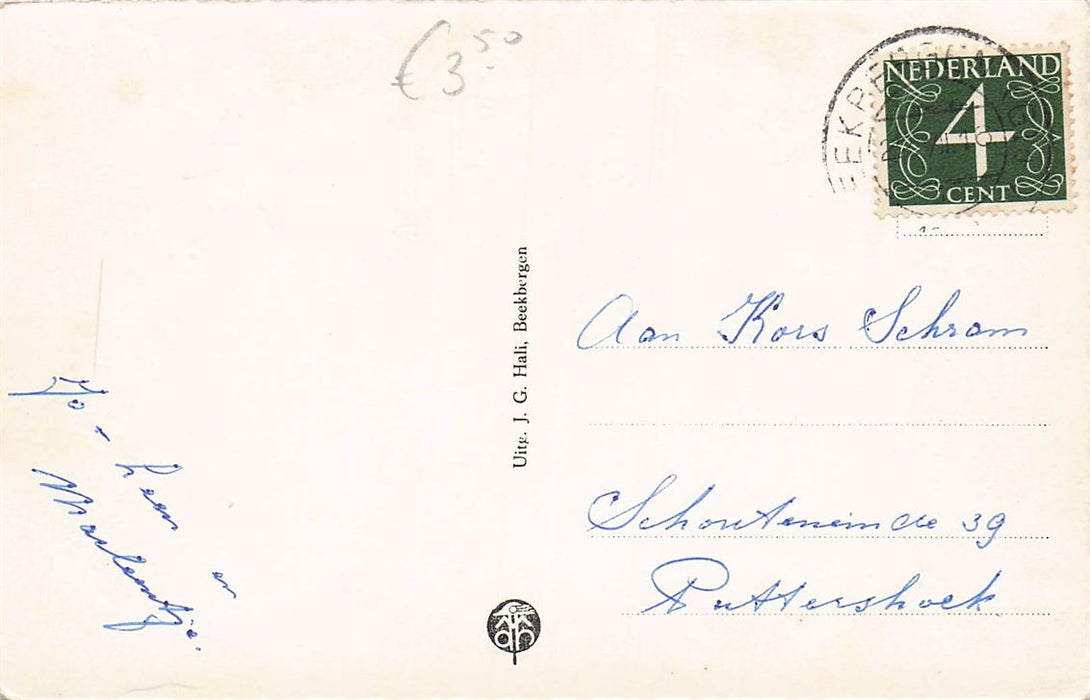 € 3.50
NEDERLAND
4
CENT
EEKBERGEN
Uitg. J. G. Hali, Beekbergen
Aan Kors Schram
Schouteneinde 39
Puttershoek
Jo - Leen
en
Marleentje.